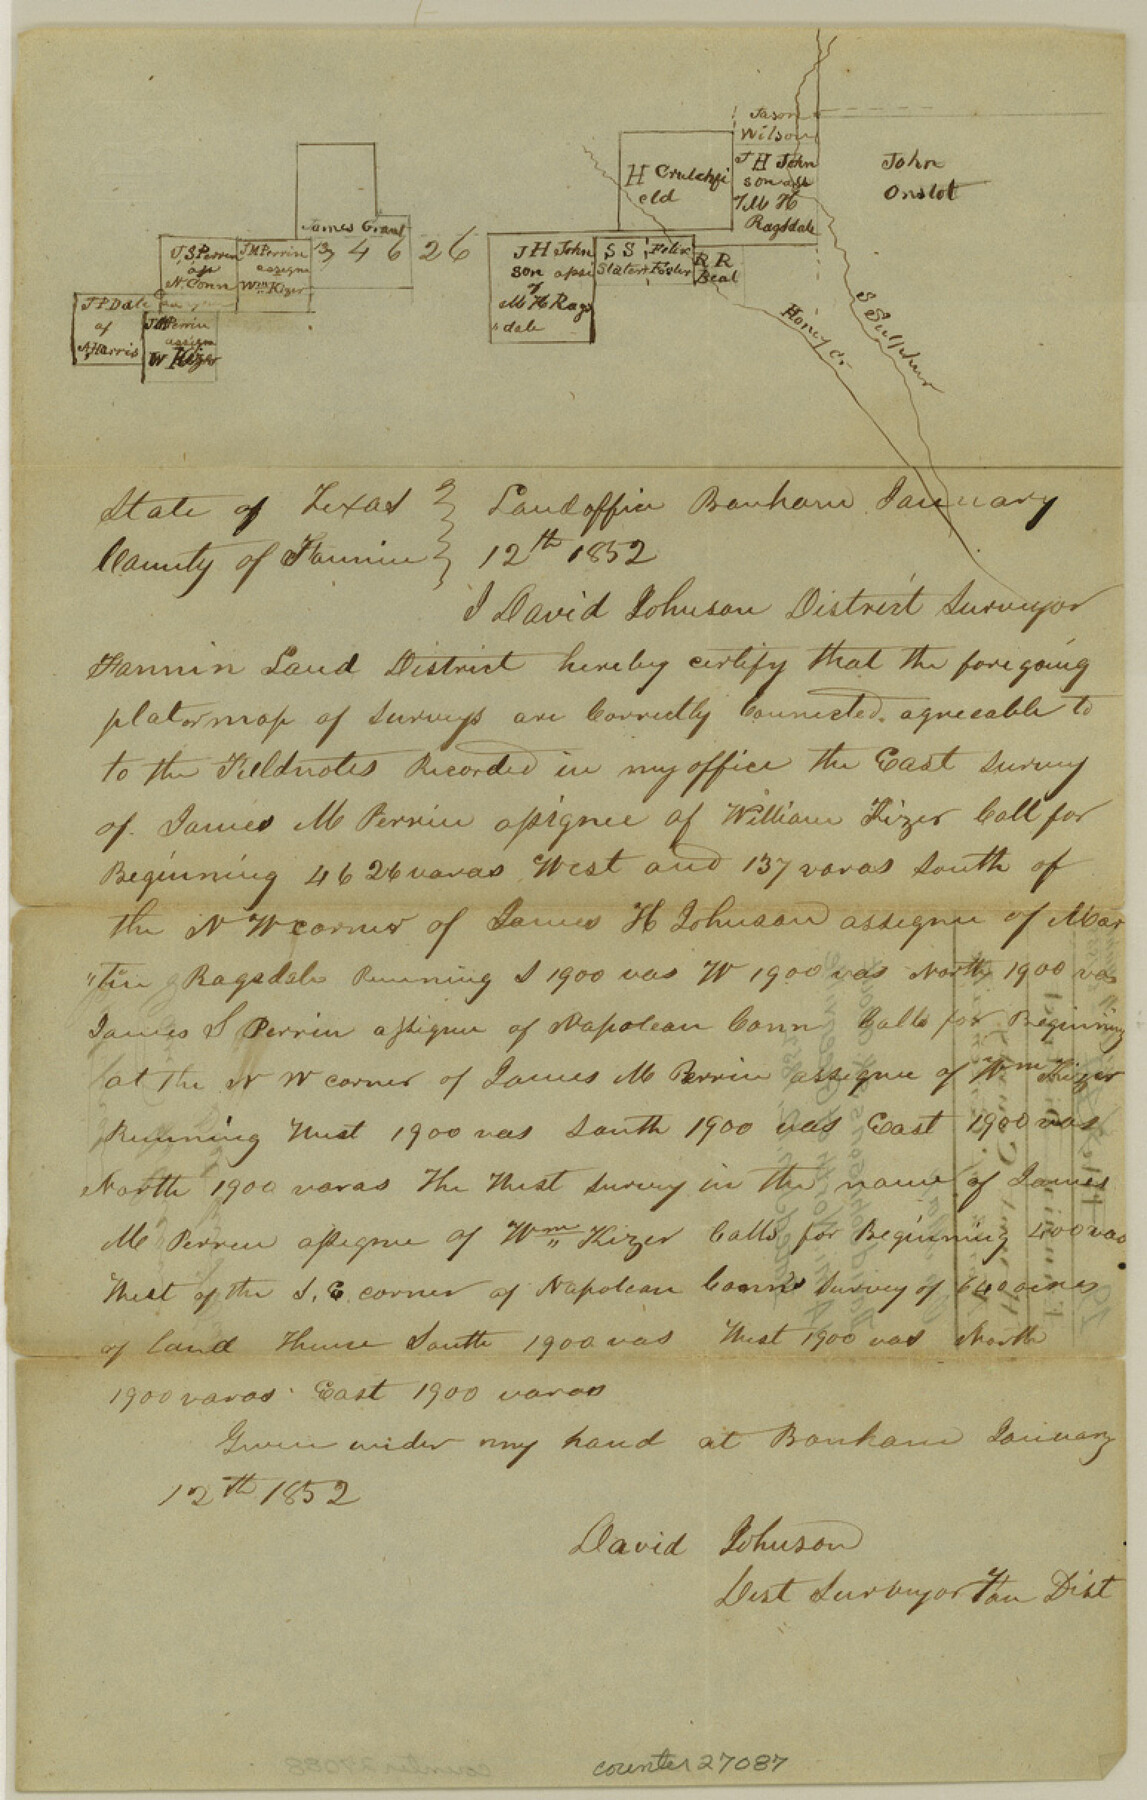 Jason
Wilson
John
Onslot
H Crutchfi
eld
J H John
son ass
of M H
Ragsdale
James Grant
J. S. Perrin
ass
N. Conn
J M Perrin
assigne
Wm Kizer
137
4 6 26
J H John
son assi
of
M H Rags
"dale
S S
Slater
Felix
Foster
R R
Beal
J P Dale
of
A Harris
J M Perrin
assigne
W Kizer
Honey Cr
S Sulphur
State of Texas } Landoffice Bonham January
County of Fannin } 12th 1852
I David Johnson District Surveyor
Fannin Land District hereby certify that the foregoing
plat or map of surveys are Correctly Connected. agreeable to
to the Fieldnotes Recorded in my office the East survey
of James M Perrin assignee of William Kizer Call for
Beginning 4626 varas West and 137 varas south of
the N W corner of James H Johnson assignee of Mar
"tin Ragsdale Running S 1900 vas W 1900 vas North 1900 vas
James S Perrin assignee of Napolean Conn Calls for Beginning
at the N W corner of James M Perrin assignee of Wm Kizer
Running West 1900 vas South 1900 vas East 1900 vas
North 1900 varas The West survey in the name of James
M Perrin assignee of Wm Kizer Calls for Beginning 400 vas
West of the S. E corner of Napolean Conns Survey of 640 acres
of land Thence South 1900 vas West 1900 vas North
1900 varas East 1900 varas
Given under my hand at Bonham January
12th 1852
David Johnson
Dist Surveyor Fan Dist
counter 27087
counter 27088